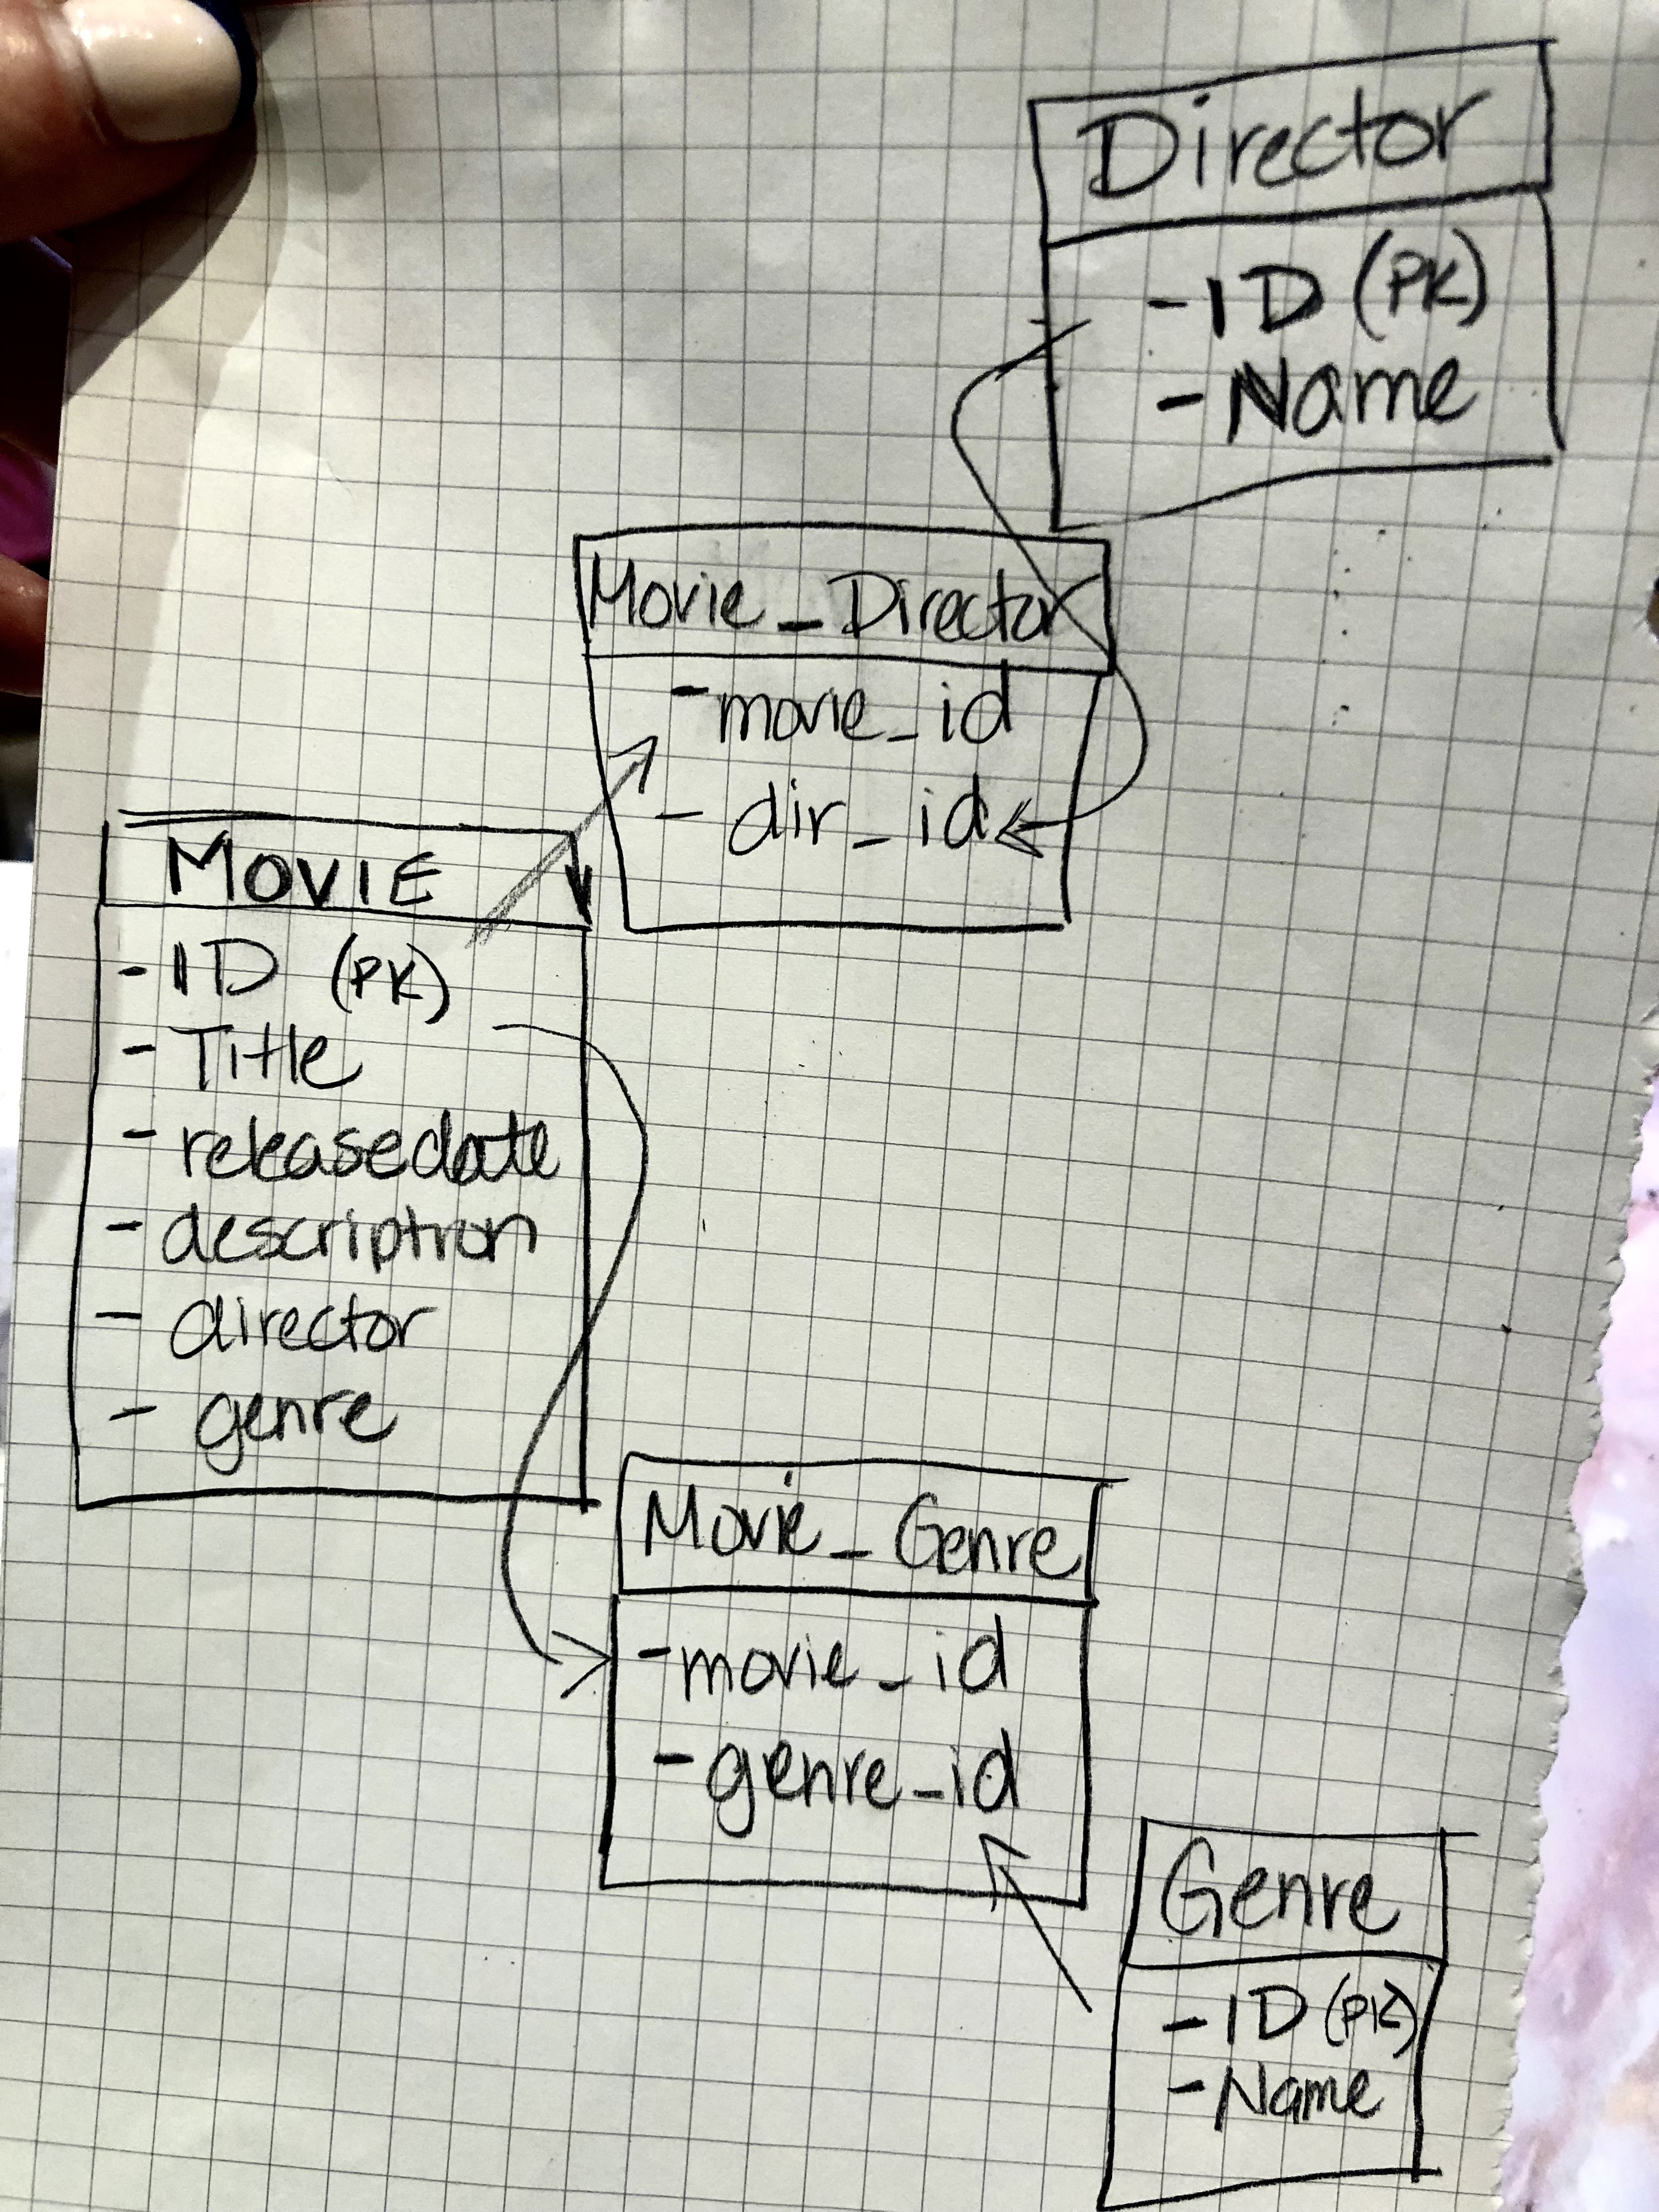 Director
- ID (PK)
- Name
Movie_Director
- movie_id
- dir_id
MOVIE
- ID (PK)
- Title
- releasedate
- description
- director
- genre
Movie_Genre
- movie_id
- genre_id
Genre
- ID (PK)
- Name